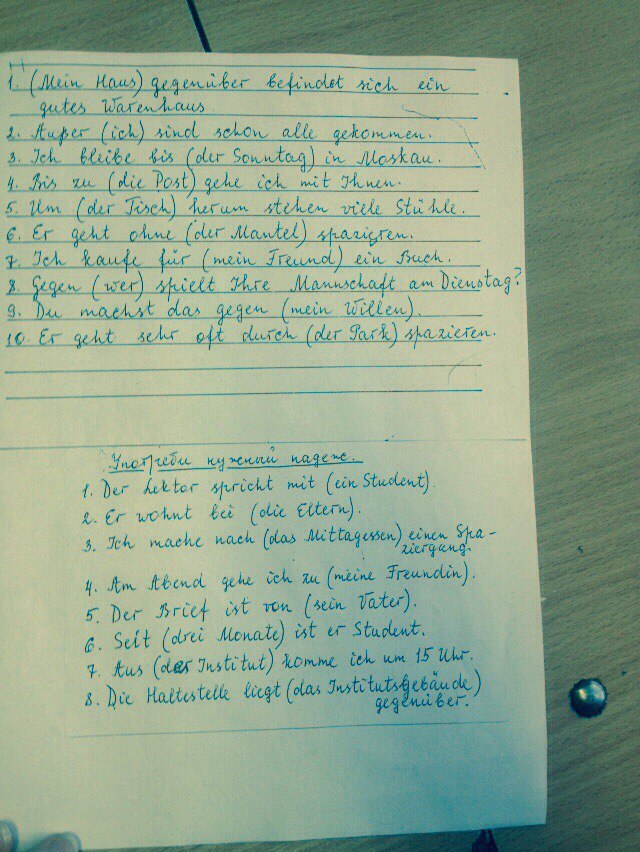 1. (Mein Haus) gegenüber befindet sich ein
gutes Warenhaus.
2. Außer (ich) sind schon alle gekommen.
3. Ich bleibe bis (der Sonntag) in Moskau.
4. Bis zu (die Post) gehe ich mit Ihnen.
5. Um (der Tisch) herum stehen viele Stühle.
6. Er geht ohne (der Mantel) spazieren.
7. Ich kaufe für (mein Freund) ein Buch.
8. Gegen (wer) spielt Ihre Mannschaft am Dienstag?
9. Du machst das gegen (mein Willen).
10. Er geht sehr oft durch (der Park) spazieren.
Употреби нужный падеж.
1. Der Lektor spricht mit (ein Student).
2. Er wohnt bei (die Eltern).
3. Ich mache nach (das Mittagessen) einen Spa-
ziergang.
4. Am Abend gehe ich zu (meine Freundin).
5. Der Brief ist von (sein Vater).
6. Seit (drei Monate) ist er Student.
7. Aus (das Institut) komme ich um 15 Uhr.
8. Die Haltestelle liegt (das Institutsgebäude)
gegenüber.